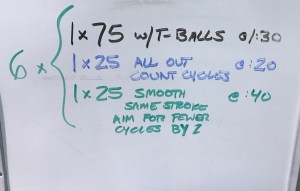 6 x { 1 x 75 W/T-BALLS @/:30
1 x 25 ALL OUT @:20
COUNT CYCLES
1 x 25 SMOOTH @:40
SAME STROKE
AIM FOR FEWER
CYCLES BY 2